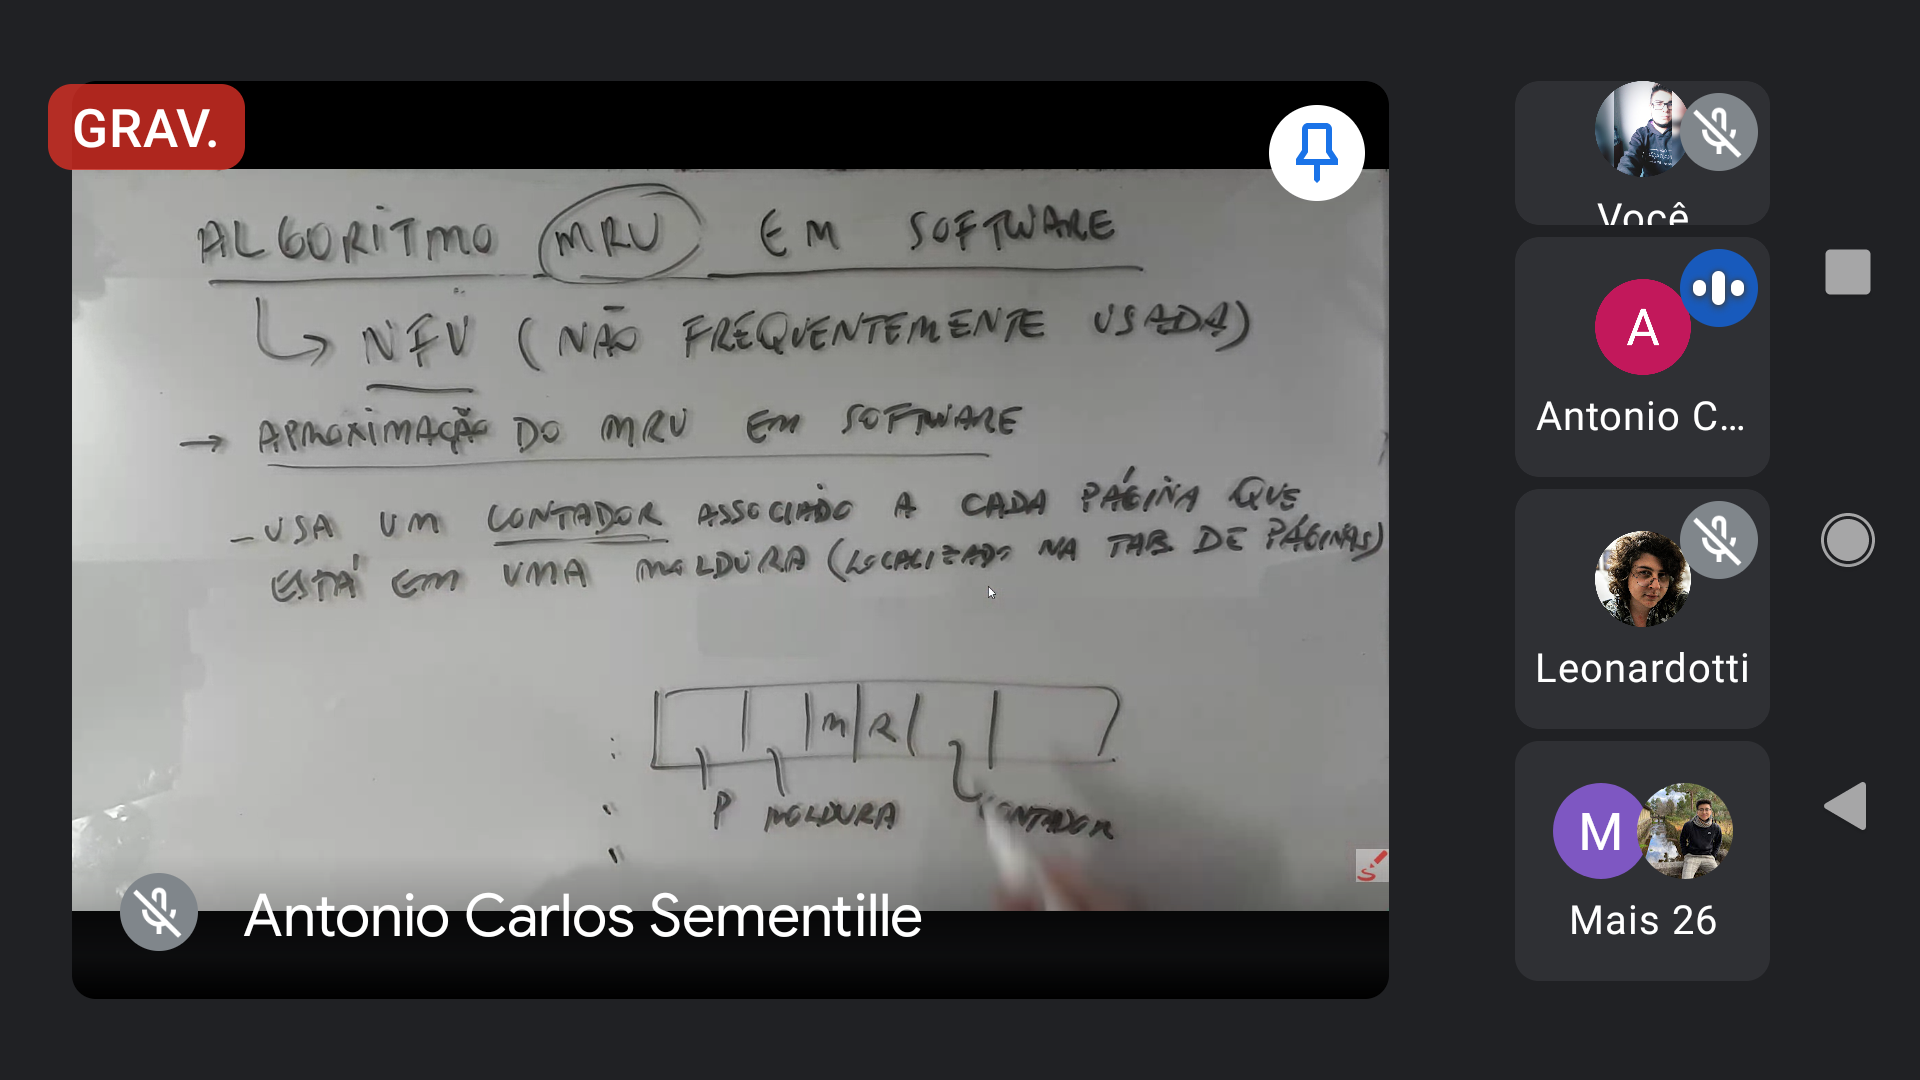 GRAV.
ALGORITMO MRU EM SOFTWARE
NFU (NÃO FREQUENTEMENTE USADA)
→ APROXIMAÇÃO DO MRU EM SOFTWARE
- USA UM CONTADOR ASSOCIADO A CADA PÁGINA QUE
ESTÁ EM UMA MOLDURA (LOCALIZADO NA TAB DE PÁGINAS)
M R
P MOLDURA CONTADOR
Antonio Carlos Sementille
Você
A
Antonio C...
Leonardotti
M
Mais 26